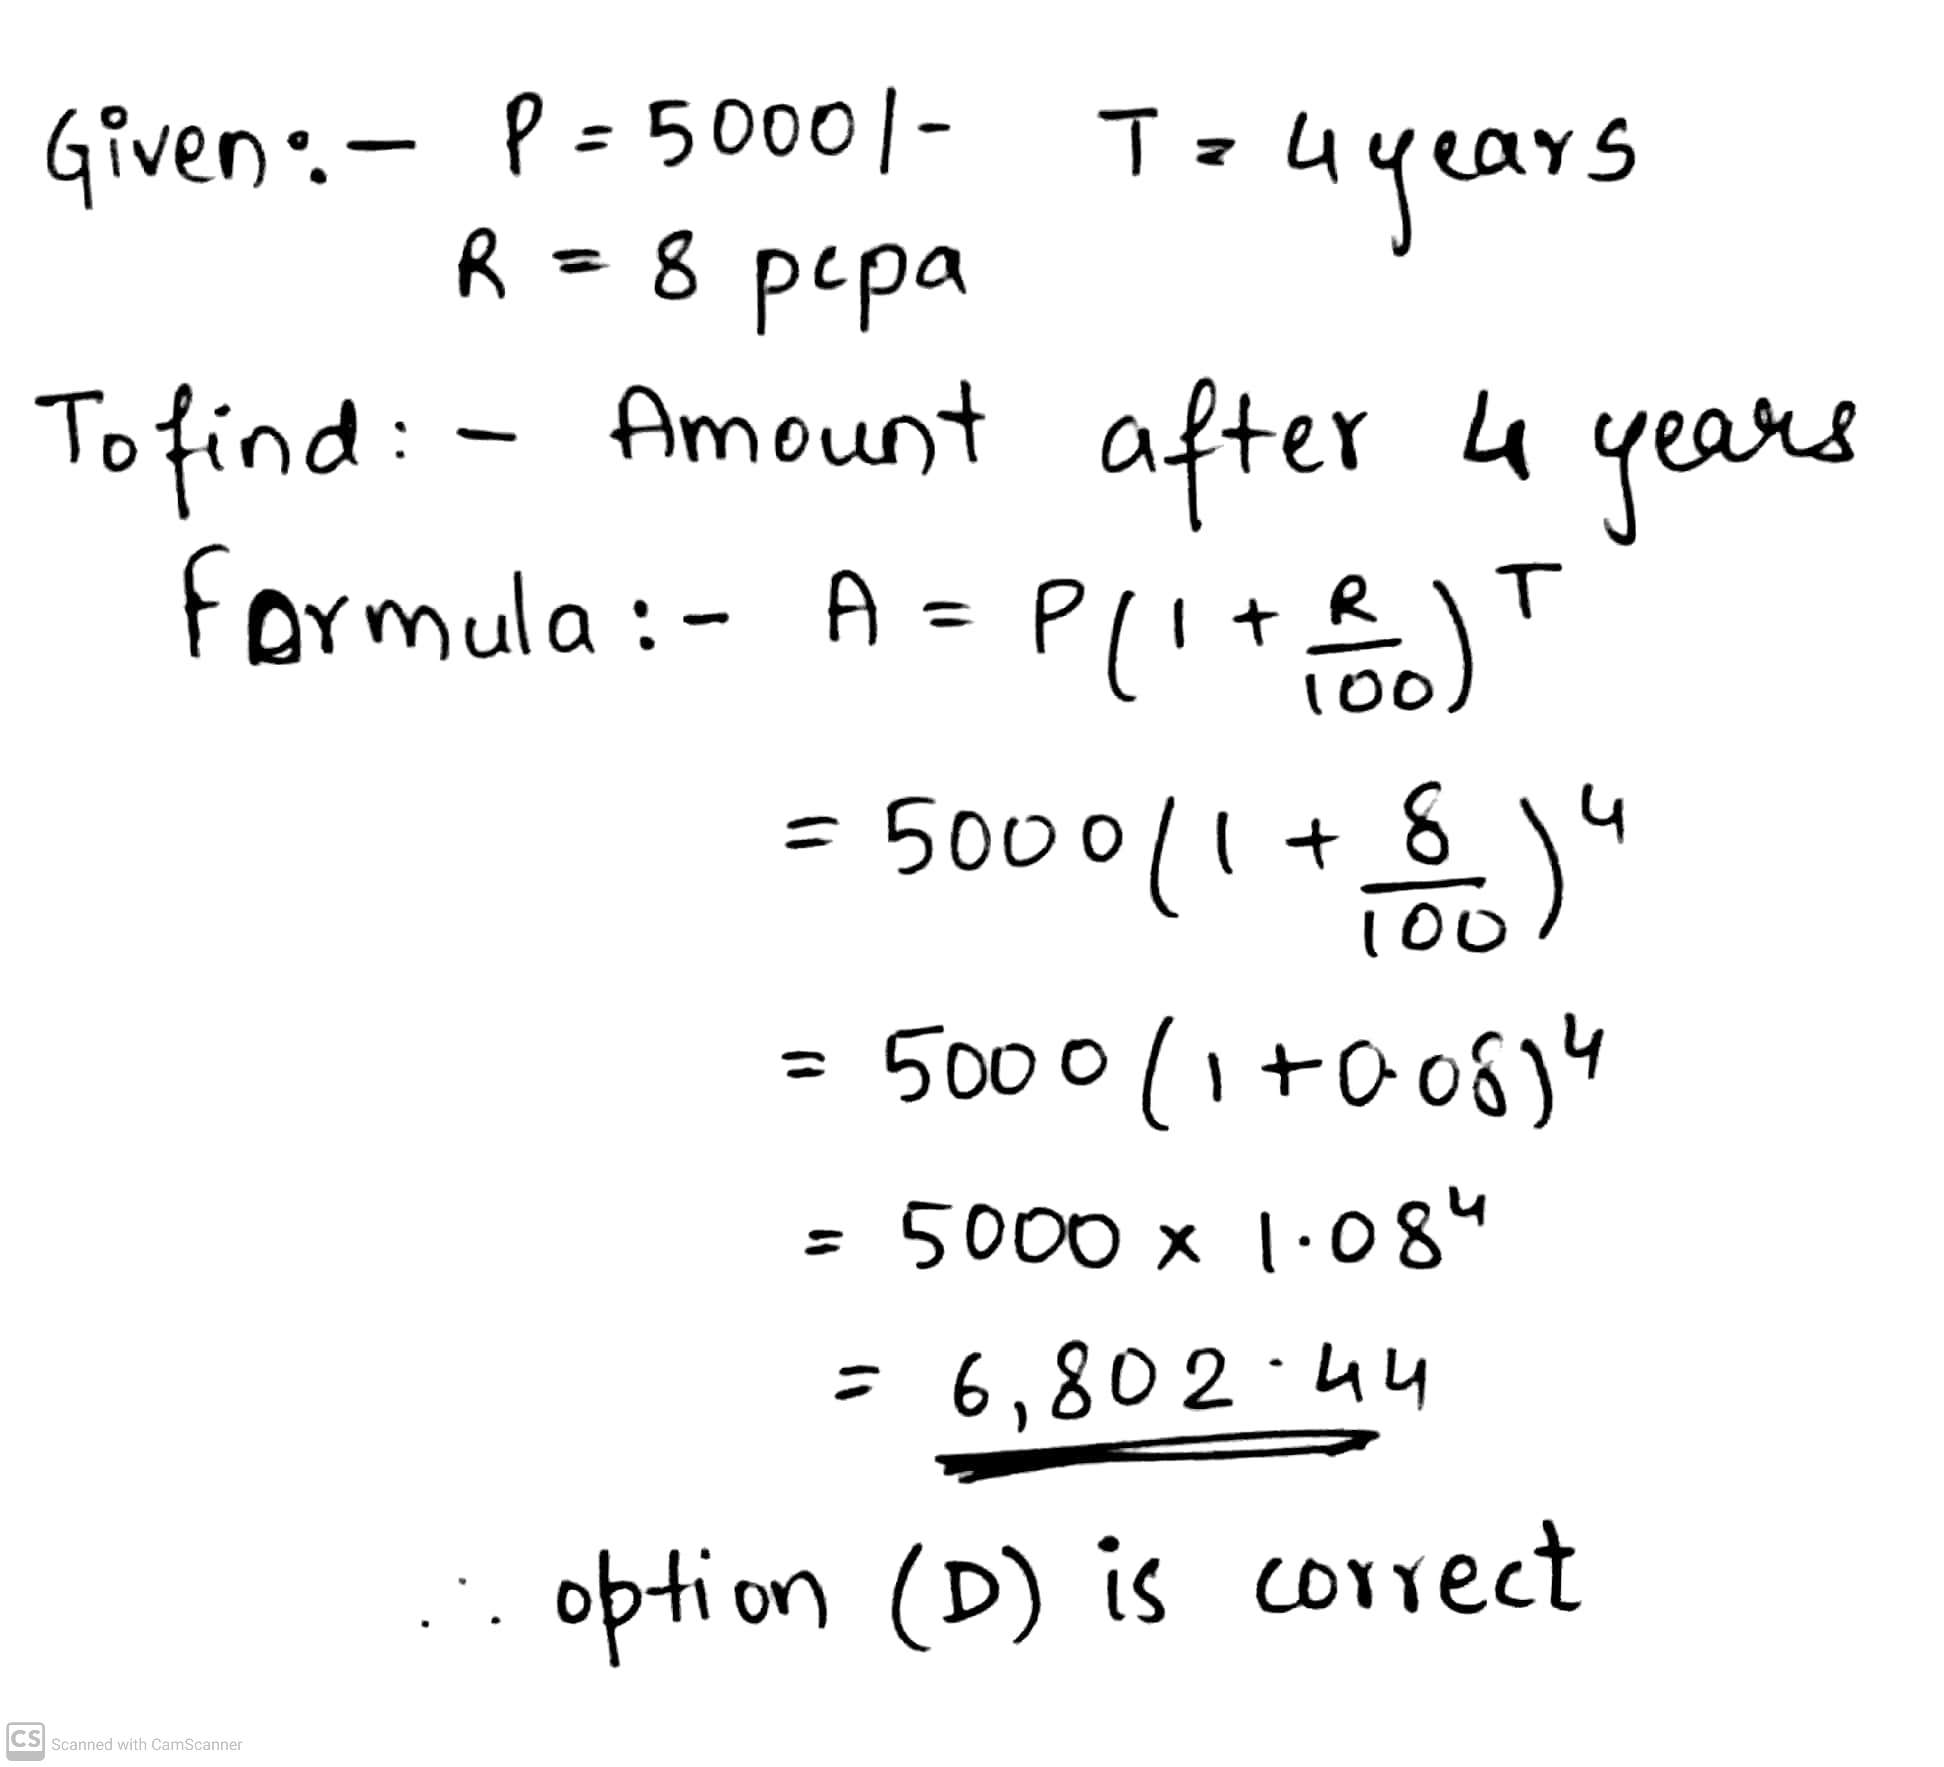 Given:- P = 5000/- T = 4 years
R = 8 pcpa
To find:- Amount after 4 years
formula:- A = P(1 + R/100)^T
= 5000(1 + 8/100)^4
= 5000(1+0.08)^4
= 5000 x 1.08^4
= 6,802.44
∴ option (D) is correct
CS Scanned with CamScanner